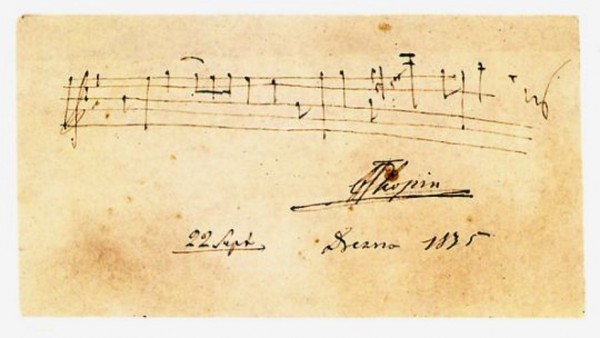 FChopin
22 Sept. Drezno 1835